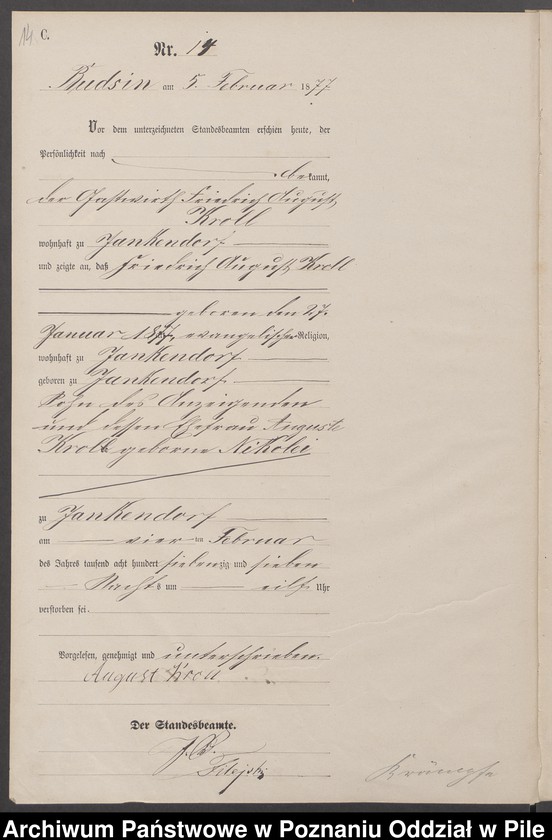 14.
C.
Nr. 14
Budsin am 5. Februar 1877
Vor dem unterzeichneten Standesbeamten erschien heute, der
Persönlichkeit nach
bekannt,
der Gastwirth Friedrich August
Kroll
wohnhaft zu Jankendorf
und zeigte an, daß Friedrich August Kroll
geboren den 27.
Januar 1877, evangelischer Religion,
wohnhaft zu Jankendorf
geboren zu Jankendorf
Sohn des Anzeigenden
und dessen Ehefrau Auguste
Kroll geborne Nikolei
zu Jankendorf
am vierten Februar
des Jahres tausend acht hundert siebenzig und sieben
Nachts um eilf Uhr
verstorben sei.
Vorgelesen, genehmigt und unterschrieben.
August Kroll
Der Standesbeamte.
Krämpfe
Archiwum Państwowe w Poznaniu Oddział w Pile